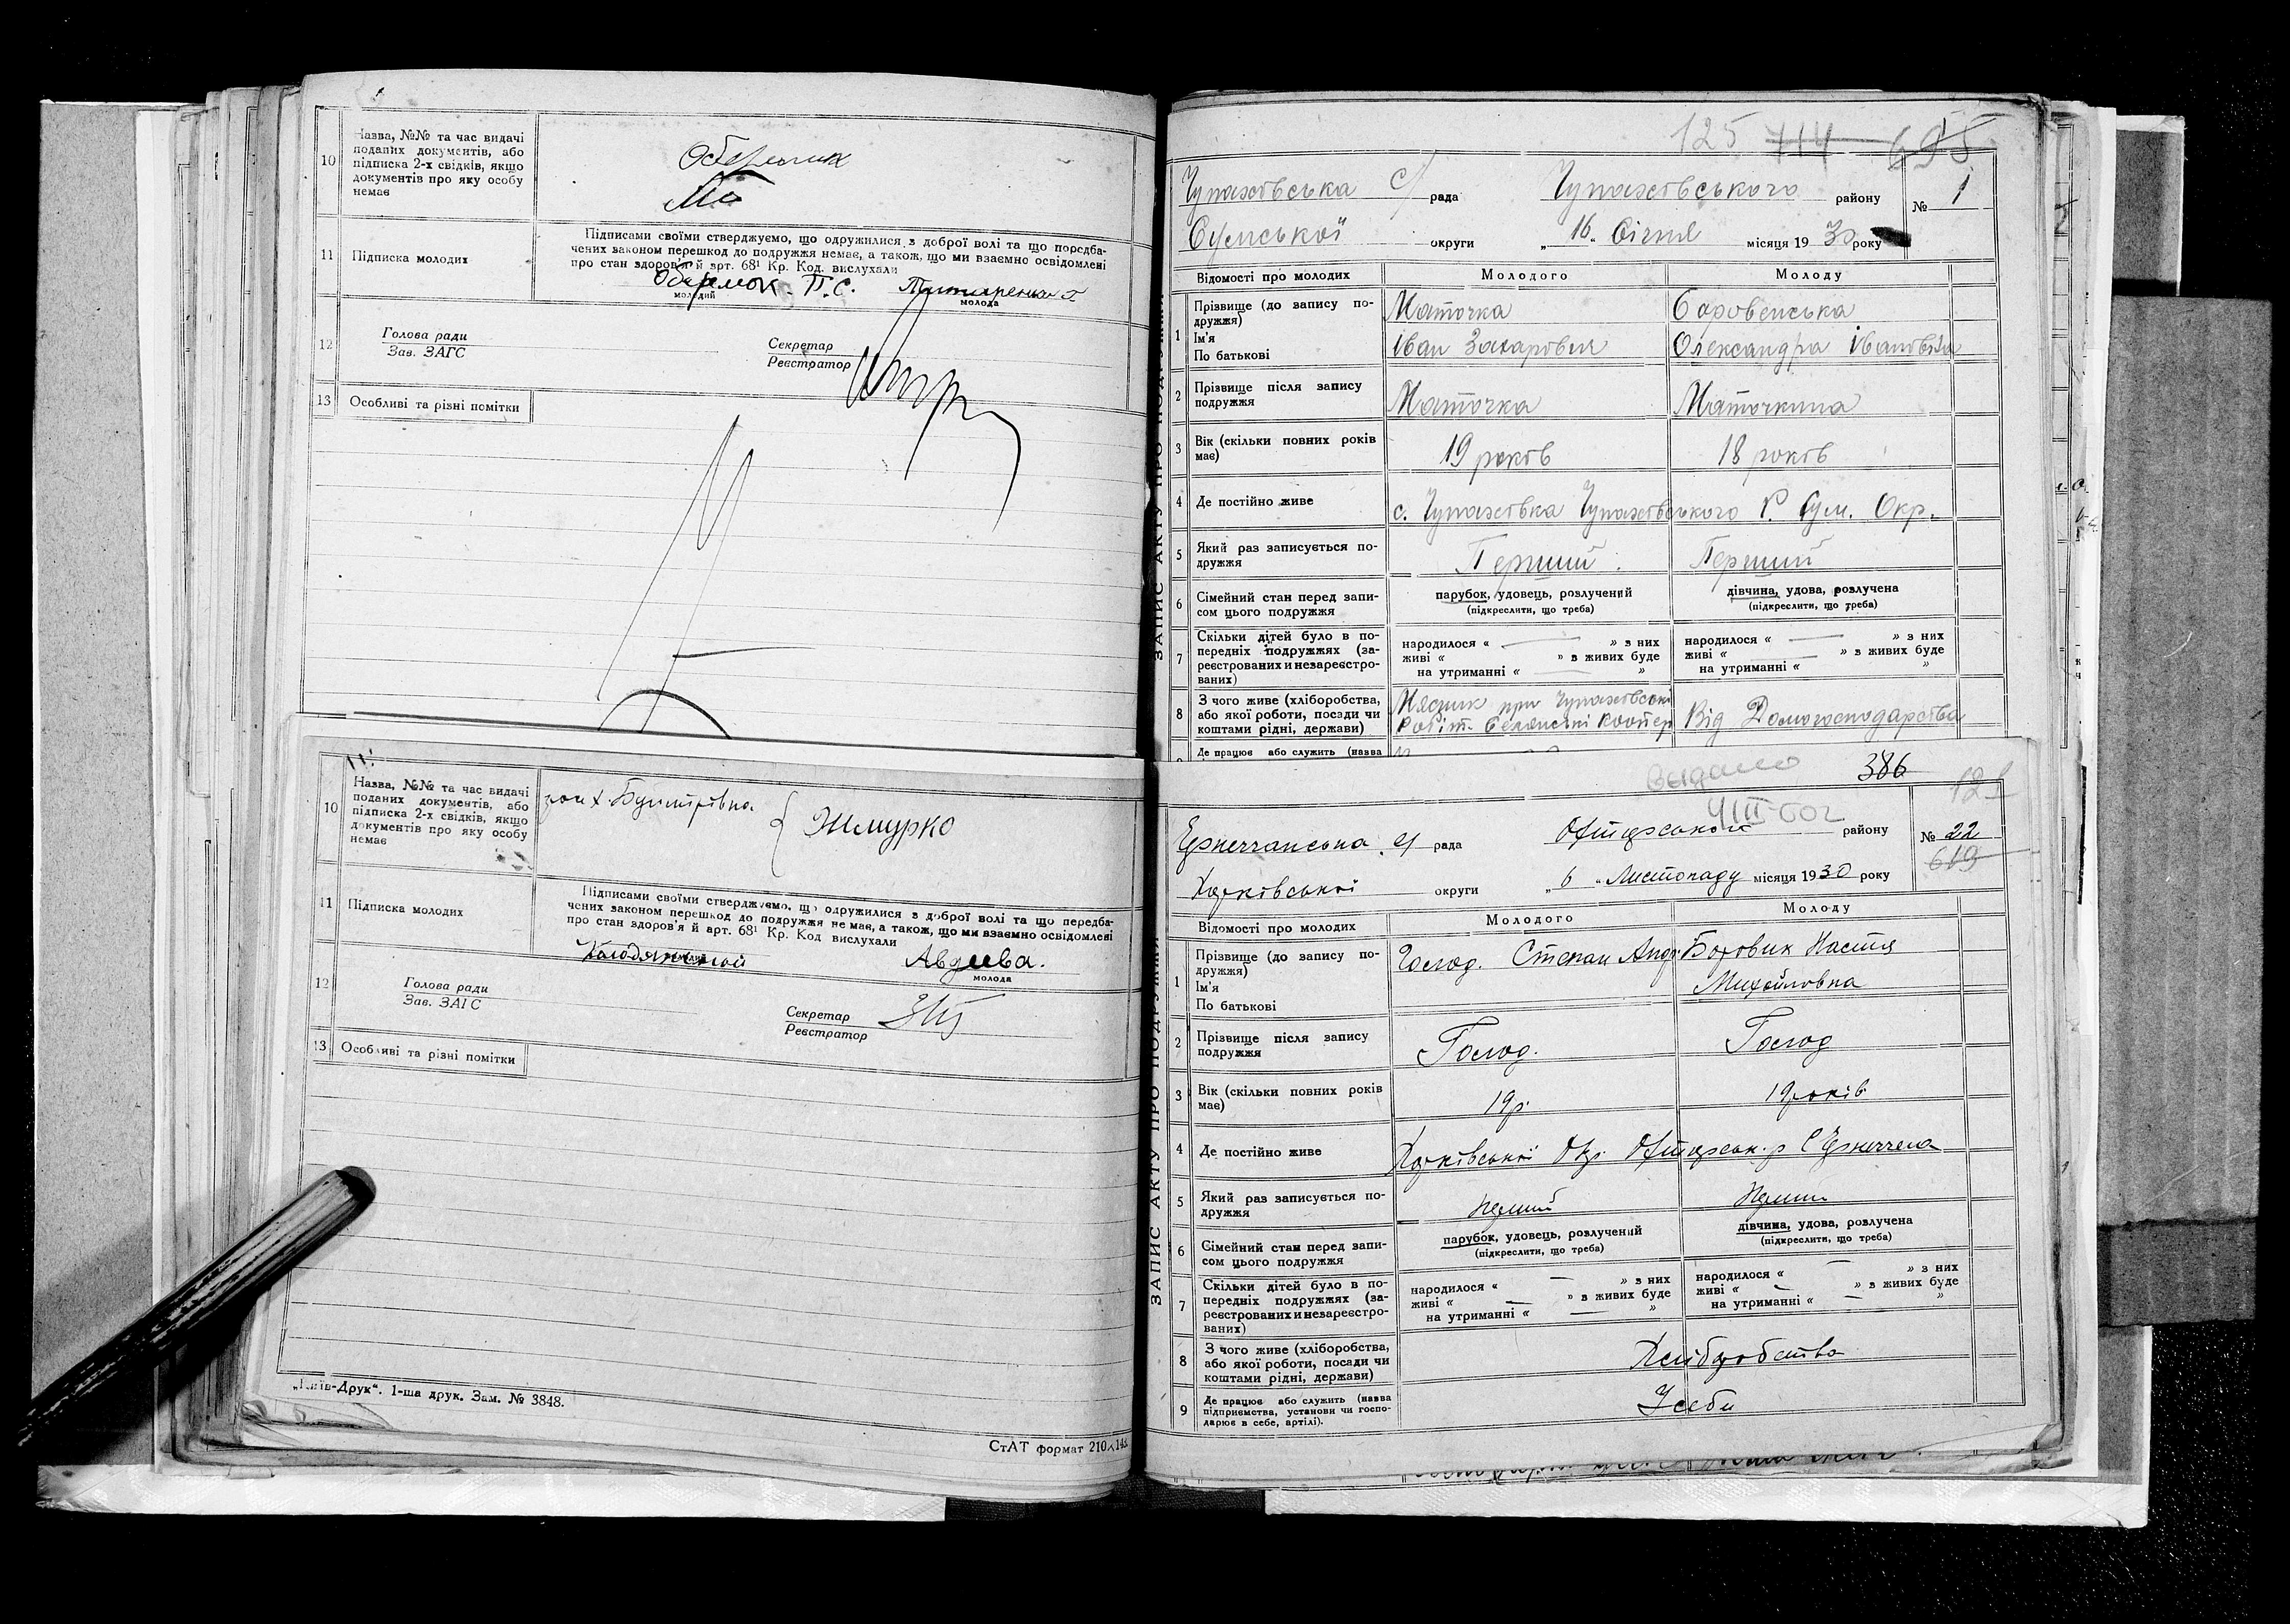 10
Назва, №№ та час видачі
поданих документів, або
підписка 2-х свідків, якщо
документів про яку особу
немає
11
Підписка молодих
Підписами своїми стверджуємо, що одружилися з доброї волі та що передба-
чених законом перешкод до подружжя немає, а також, що ми взаємно освідомлені
про стан здоров'я й арт. 68¹ Кр. Код. вислухали
П.С.
молодий
молода
12
Голова ради
Зав. ЗАГС
Секретар
Реєстратор
13
Особливі та різні помітки
10
Назва, №№ та час видачі
поданих документів, або
підписка 2-х свідків, якщо
документів про яку особу
немає
Жмурко
11
Підписка молодих
Підписами своїми стверджуємо, що одружилися з доброї волі та що передба-
чених законом перешкод до подружжя немає, а також, що ми взаємно освідомлені
про стан здоров'я й арт. 68¹ Кр. Код вислухали
Авдиева.
молода
12
Голова ради
Зав. ЗАГС
Секретар
Реєстратор
13
Особливі та різні помітки
„Київ-Друк“. 1-ша друк. Зам. № 3848.
СтАТ формат 210×148
125 714 695
Чупахівська с/ рада Чупахівського району № 1
Сумської округи „ 16 „ Січня місяця 1930 року
ЗАПИС АКТУ ПРО ПОДРУЖЖЯ
Відомості про молодих Молодого Молоду
1
Прізвище (до запису по-
дружжя)
Ім'я
По батькові
Маточка Боровенська
Іван Захарович Олександра Івановна
2
Прізвище після запису
подружжя
Маточка Маточкина
3
Вік (скільки повних років
має)
19 років 18 років
4
Де постійно живе
с. Чупахівка Чупахівського Р. Сум. Окр.
5
Який раз записується по-
дружжя
Перший Перший
6
Сімейний стан перед запи-
сом цього подружжя
парубок, удовець, розлучений
(підкреслити, що треба)
дівчина, удова, розлучена
(підкреслити, що треба)
7
Скільки дітей було в по-
передніх подружжях (за-
реєстрованих и незареєстро-
ваних)
народилося « — » з них
живі « — » в живих буде
на утриманні « — »
народилося « — » з них
живі « — » в живих буде
на утриманні « »
8
З чого живе (хліборобства,
або якої роботи, посади чи
коштами рідні, держави)
при Чупахівські
Від Домогосподарства
Де працює або служить (назва
Видано 386
Харківської округи „ 6 „ Листопаду місяця 1930 року
рада району № 22
619
ЗАПИС АКТУ ПРО ПОДРУЖЖЯ
Відомості про молодих Молодого Молоду
1
Прізвище (до запису по-
дружжя)
Ім'я
По батькові
Степан Андр Боровик Настя
Михайловна
2
Прізвище після запису
подружжя
3
Вік (скільки повних років
має)
19 р. 19 років
4
Де постійно живе
Харківської Окр.
5
Який раз записується по-
дружжя
6
Сімейний стан перед запи-
сом цього подружжя
парубок, удовець, розлучений
(підкреслити, що треба)
дівчина, удова, розлучена
(підкреслити, що треба)
7
Скільки дітей було в по-
передніх подружжях (за-
реєстрованих и незареєстро-
ваних)
народилося « — » з них
живі « — » в живих буде
на утриманні « — »
народилося « — » з них
живі « — » в живих буде
на утриманні « — »
8
З чого живе (хліборобства,
або якої роботи, посади чи
коштами рідні, держави)
Хліборобства
9
Де працює або служить (назва
підприємства, установи чи госпо-
дарює в себе, артілі).
У себи